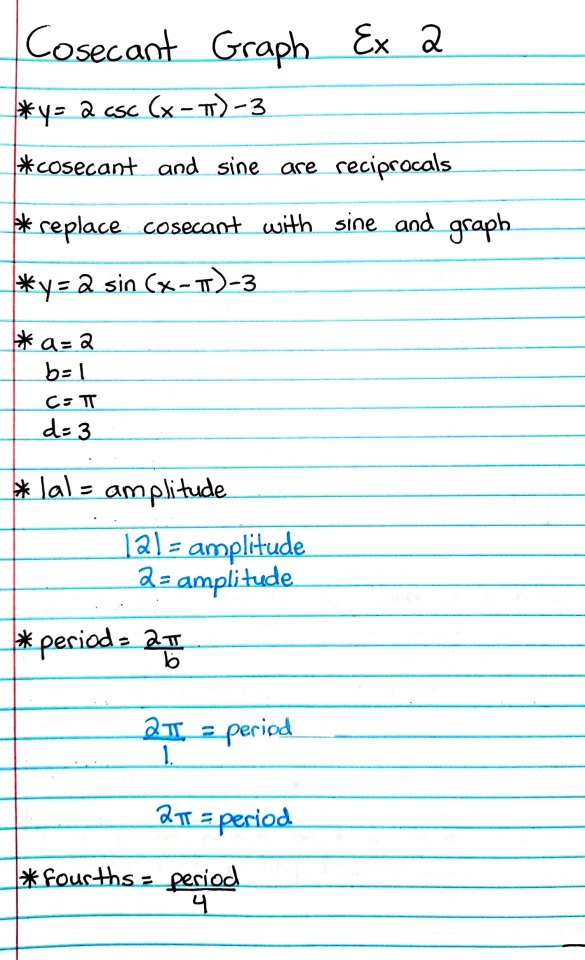 Cosecant Graph Ex 2
*y= 2 csc (x-π)-3
*cosecant and sine are reciprocals
*replace cosecant with sine and graph
*y=2 sin (x-π)-3
* a=2
b=1
c=π
d=3
* |a| = amplitude
|2| = amplitude
2= amplitude
* period = 2π/b
2π/1 = period
2π = period
*fourths = period/4